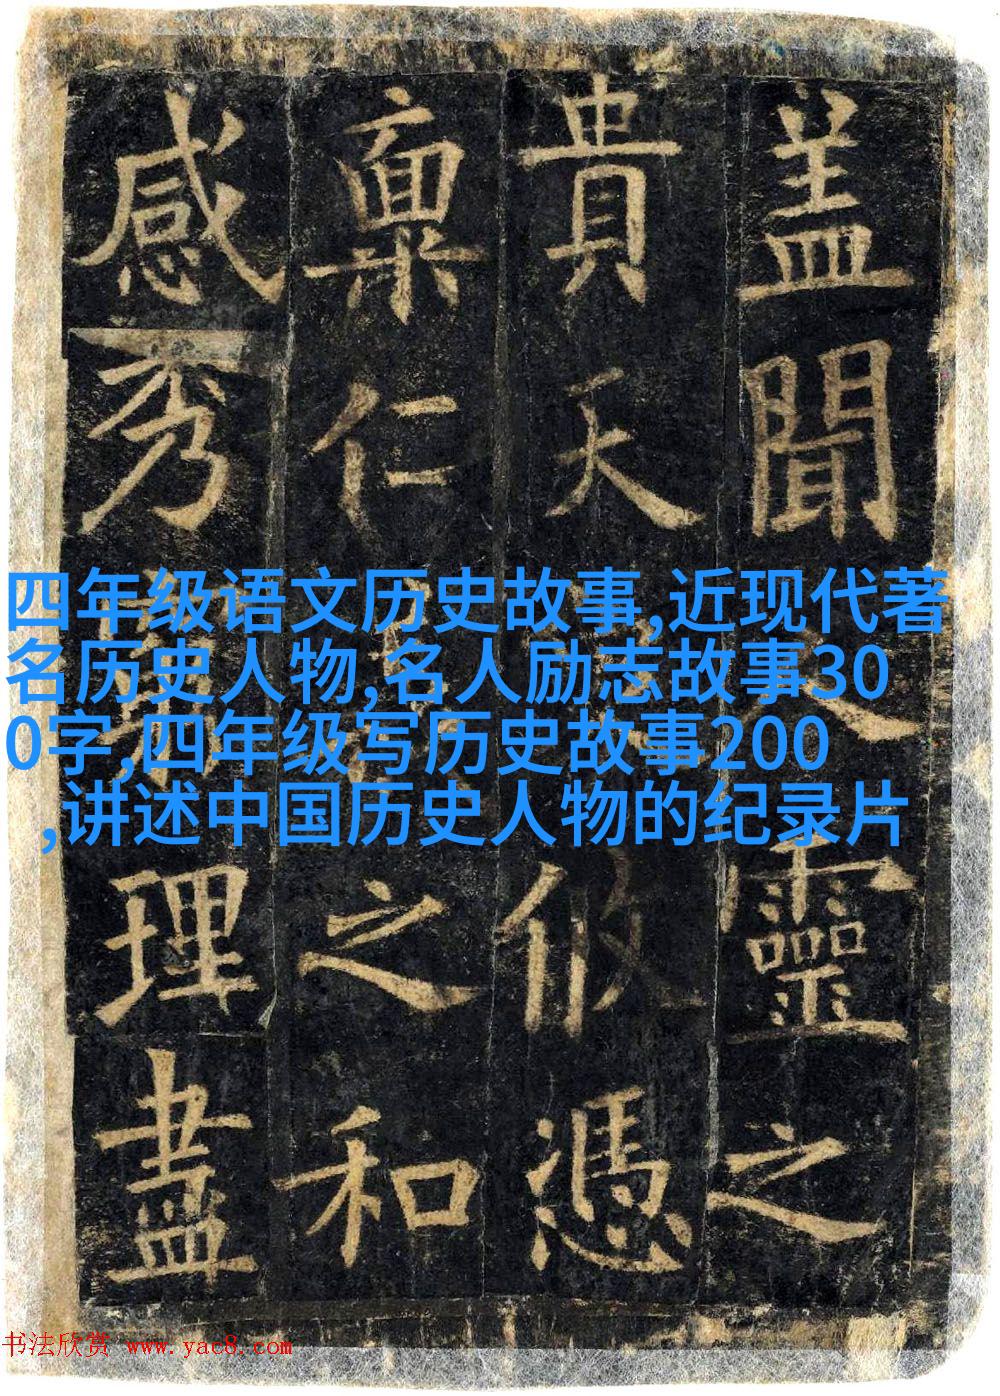 盖聞人靈之
貴天攸憑
稟仁之和
感秀理盡
四年级语文历史故事,近现代著
名历史人物,名人励志故事30
0字,四年级写历史故事200
,讲述中国历史人物的纪录片
书法欣赏 www.yac8.com